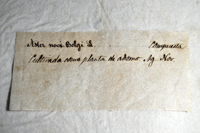 Aster novi Belgi L. Compuesta
Cultivada como planta de adorno. Ag. Nov.